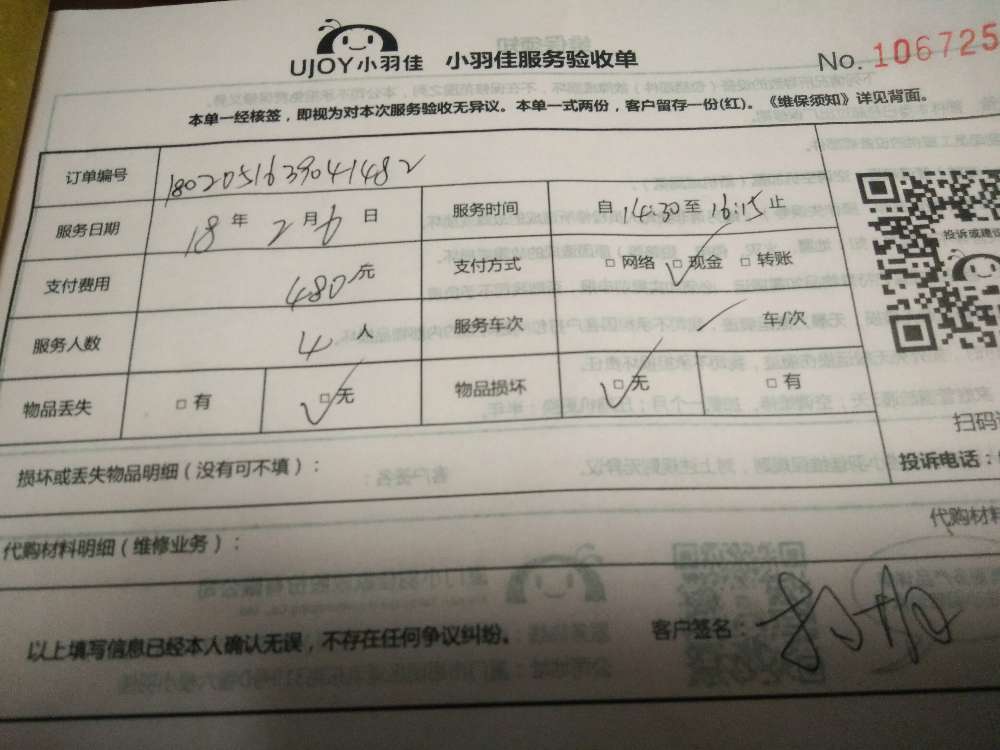 UJOY小羽佳 小羽佳服务验收单
No. 106725
本单一经核签，即视为对本次服务验收无异议。本单一式两份，客户留存一份(红)。《维保须知》详见背面。
订单编号 1802051639041482
服务日期 18 年 2 月 6 日 服务时间 自 14:30 至 16:15 止
支付费用 480 元 支付方式 □ 网络 □ 现金 □ 转账
服务人数 4 人 服务车次 车/次
物品丢失 □ 有 □ 无 物品损坏 □ 无 □ 有
投诉或建议
扫码
损坏或丢失物品明细（没有可不填）：
投诉电话：
代购材料明细（维修业务）：
代购材料
以上填写信息已经本人确认无误，不存在任何争议纠纷。 客户签名：